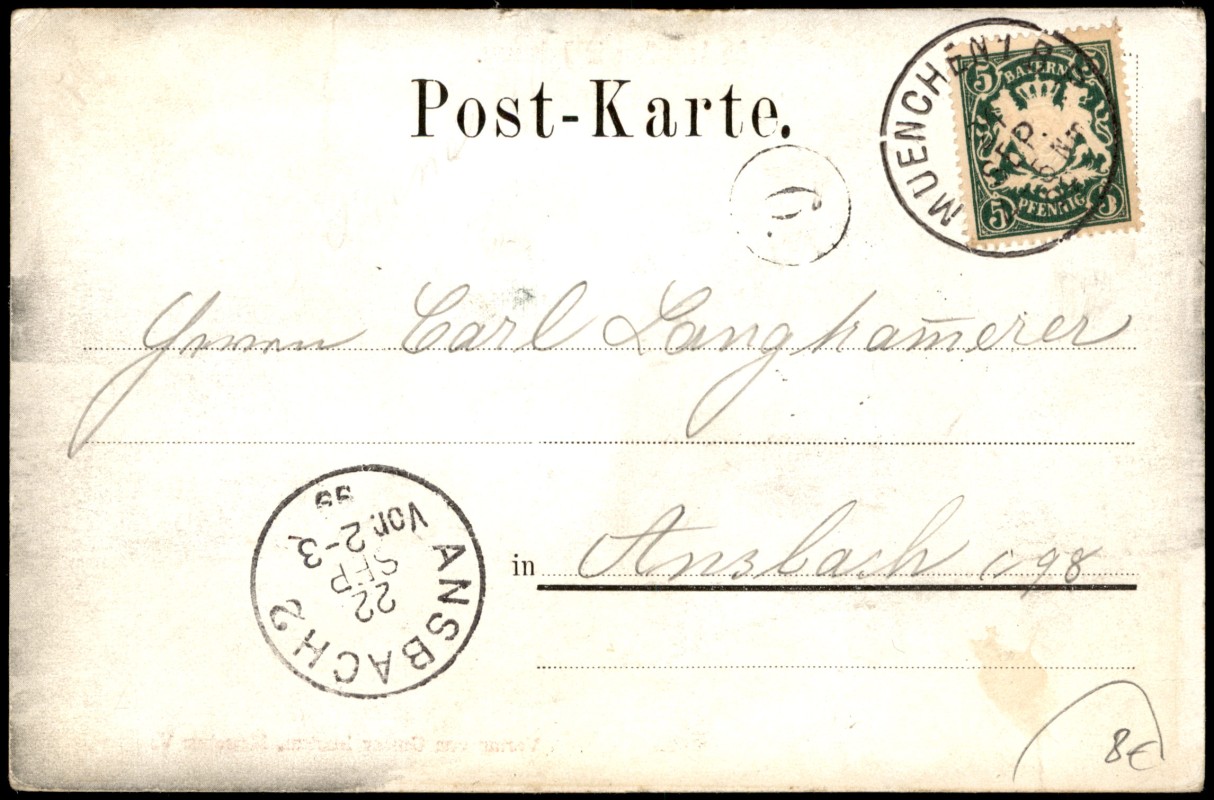 Post-Karte.
MUENCHEN
SEP.
5 BAYERN
5 PFENNIG
6.
Herrn Carl Langham̅erer
in Ansbach
ANSBACH 2
22
SEP
Vor. 2-3
99
8€